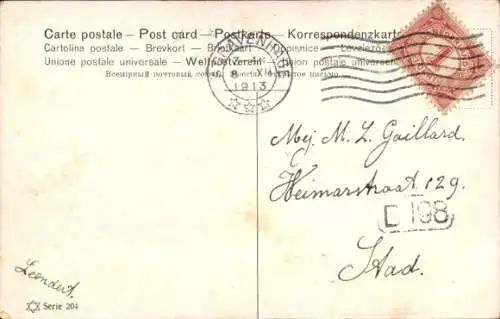 Carte postale – Post card – Postkarte – Korrespondenzkarte
Cartolina postale – Brevkort – Briefkaart – Dopisnice – Levelező
Unione postale universale – Weltpostverein – Union postale universelle
Всемірный почтовый союзъ. Россія. Открытое письмо.
1913
1
Mej. M. L. Gaillard.
Weimarstraat 129.
D 198
Stad.
Leendert.
Serie 204